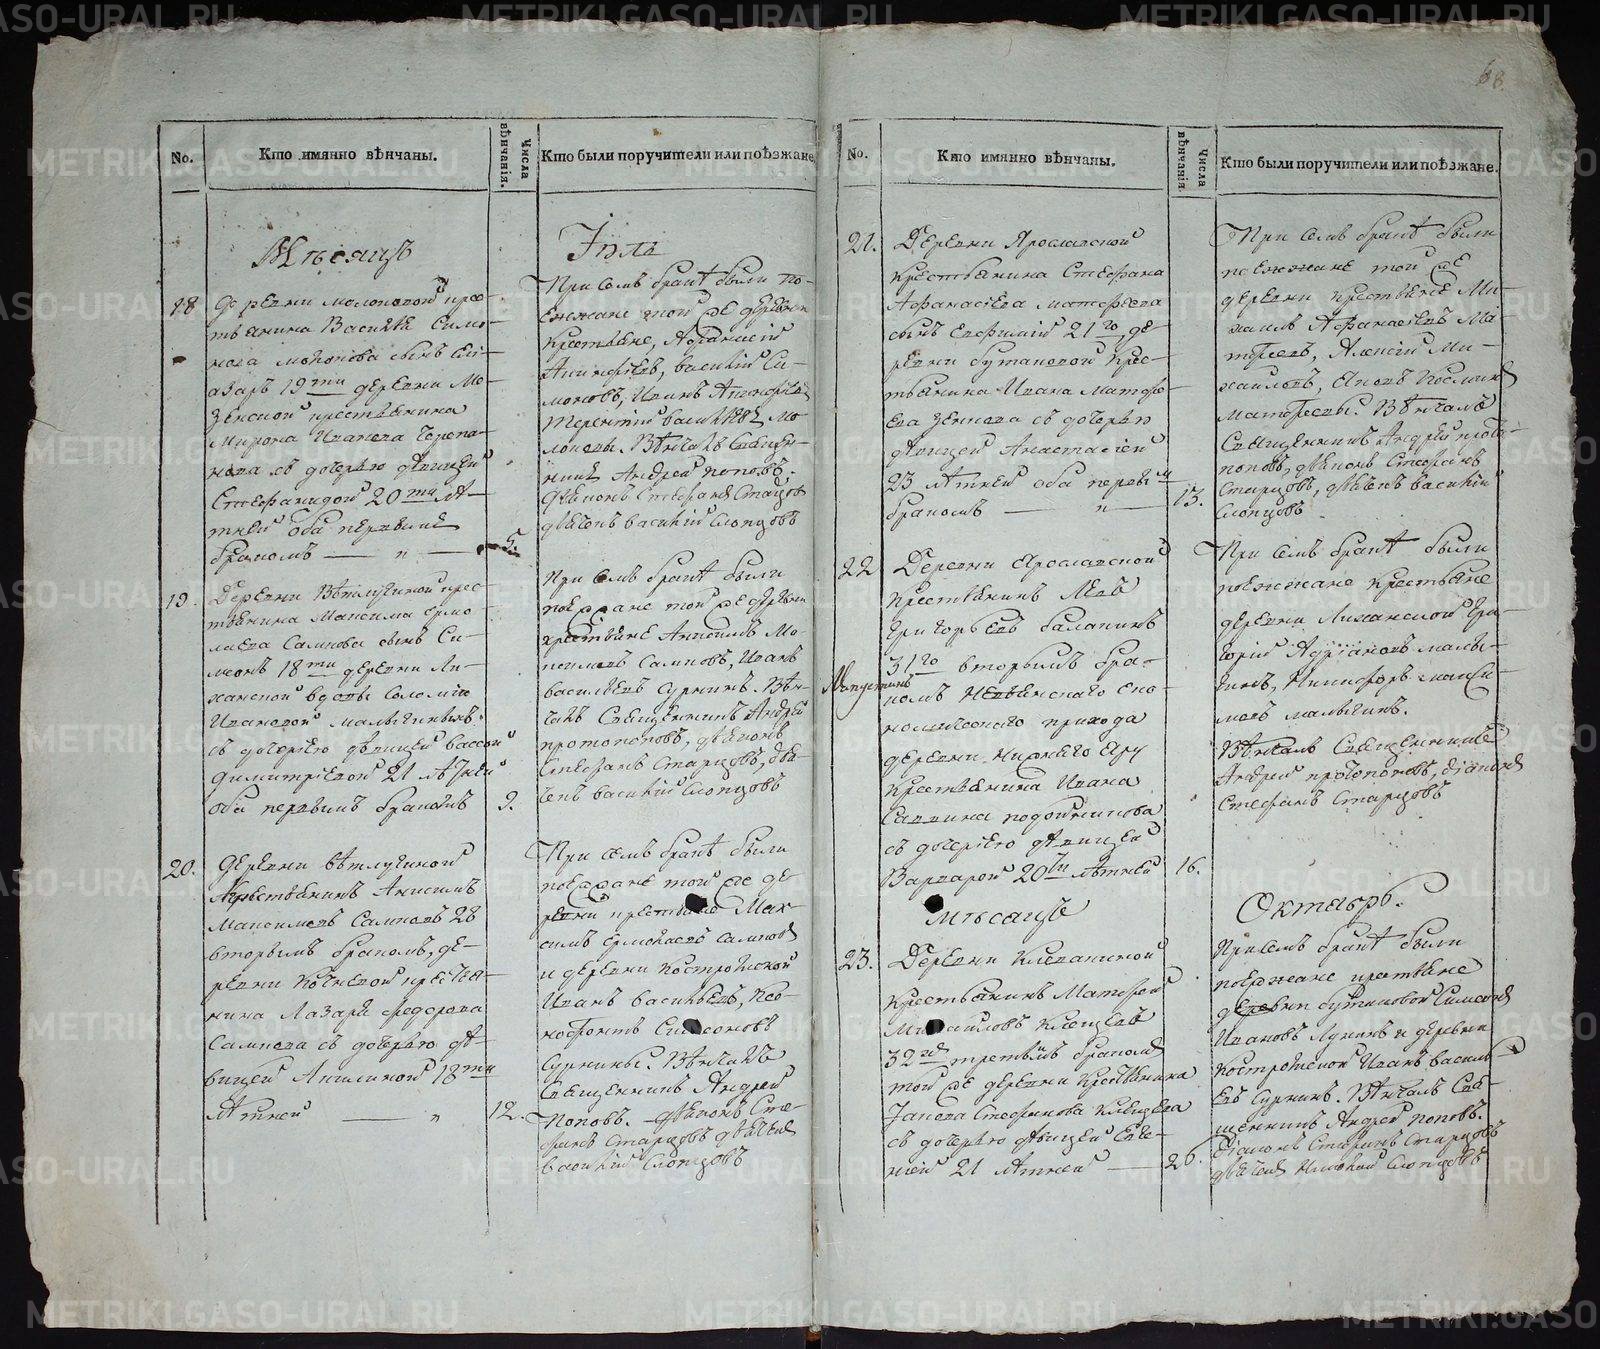 68.
No.
Кто имянно вѣнчаны.
Числа вѣнчанія.
Кто были поручители или поѣзжане
Мѣсяцъ
Іюль
18
Деревни Молоковой кресть
тьянина Василья Симо-
нова сынъ Ели-
азаръ 19ти деревни Мо-
крестьянина
Мирона Иванова Черепа-
нова съ дочерью дѣвицей
Стефанидой 20ти лѣ-
тней оба первымъ
бракомъ — „ —
5.
При семъ бракѣ были по-
езжане той же деревни
крестьяне, Афанасій
Василій Си-
моновъ, Иванъ
Терентій Васильевъ Мо-
Вѣнчалъ Священ-
никъ Андрей Поповъ.
Дьяконъ Стефанъ Старцовъ
дьячокъ Василій Слопцовъ
19.
Деревни Ветлугиной крес-
тьянина Максима Ермо-
лаева Сампова сынъ Си-
монъ 18ти деревни Ли-
ханской вдовы Соломіи
Ивановой Малыгиныхъ
съ дочерью дѣвицей Вассой
Димитріевой 21 лѣтней
оба первымъ бракомъ
9.
При семъ бракѣ были
поезжане той же деревни
крестьяне Анисимъ Ма-
ксимовъ Самповъ, Иванъ
Васильевъ Суринъ. Вѣн-
чалъ Священникъ Андрей
Протопоповъ, дьяконъ
Стефанъ Старцовъ, дья-
чекъ Василій Слопцовъ
20.
Деревни Ветлугиной
Крестьянинъ Анисимъ
Максимовъ Самповъ 28
вторымъ бракомъ, де-
ревни крестья-
нина Лазаря Федорова
Сампова съ дочерью дѣ-
вицей Акилиной 18ти
лѣтней — „
12.
При семъ бракѣ были
поезжане той же де-
ревни крестьяне Мак-
симъ Ермолаевъ Самповъ
и деревни Костромской
Иванъ Васильевъ, Ксе-
нофонтъ Симеоновъ
Сурины. Вѣнчалъ
Священникъ Андрей
Поповъ. дьяконъ Сте-
фанъ Старцовъ дьячекъ
Василій Слопцовъ
No.
Кто имянно вѣнчаны.
Числа вѣнчанія.
Кто были поручители или поѣзжане.
21.
Деревни Ярославской
крестьянина Стефана
Афанасіева Матфеева
сынъ Евфимій 21го де-
ревни Бутаковой крес-
тьянина Ивана Матфе-
ева Зенкова съ дочерью
дѣвицей Анастасіей
23 лѣтней оба первым
бракомъ — „ —
13.
При семъ бракѣ были
поезжане той же
деревни крестьяне Ми-
хаилъ Афанасіевъ Ма-
тфеевъ, Алексій Ми-
хайловъ,
Матфеевы. Вѣнчалъ
Священникъ Андрей Прото-
поповъ, дьяконъ Стефанъ
Старцовъ, дьячекъ Василій
Слопцовъ
22
Деревни Ярославской
крестьянинъ Левъ
Григорьевъ Балакинъ
31го вторымъ бра-
комъ Невьянскаго эко-
номическаго прихода
деревни Нижнего Яру
крестьянина Ивана
Саввина
съ дочерью дѣвицей
Варварой 20ти лѣтней
16.
При семъ бракѣ были
поезжане крестьяне
деревни Лиханской Гри-
горій Адріановъ Малы-
гинъ, Никифоръ Макси-
мовъ Малыгинъ.
Вѣнчалъ Священникъ
Андрей Протопоповъ, діаконъ
Стефанъ Старцовъ
Мѣсяцъ
Октябрь.
23.
Деревни Клевакиной
крестьянинъ Матфей
Михайловъ Клещевъ
32хъ третьимъ бракомъ
той же деревни крестьянина
Іакова Стефанова Клещева
съ дочерью дѣвицей Евге-
ніей 21 лѣтней —
26.
При семъ бракѣ были
поезжане крестьяне
деревни Бутаковой Симеонъ
Ивановъ Лукинъ и деревни
Костромской Иванъ Василь-
евъ Суринъ. Вѣнчалъ Свя-
щенникъ Андрей Поповъ.
Діаконъ Стефанъ Старцовъ
дьячекъ Слопцовъ
METRIKI.GASO-URAL.RU